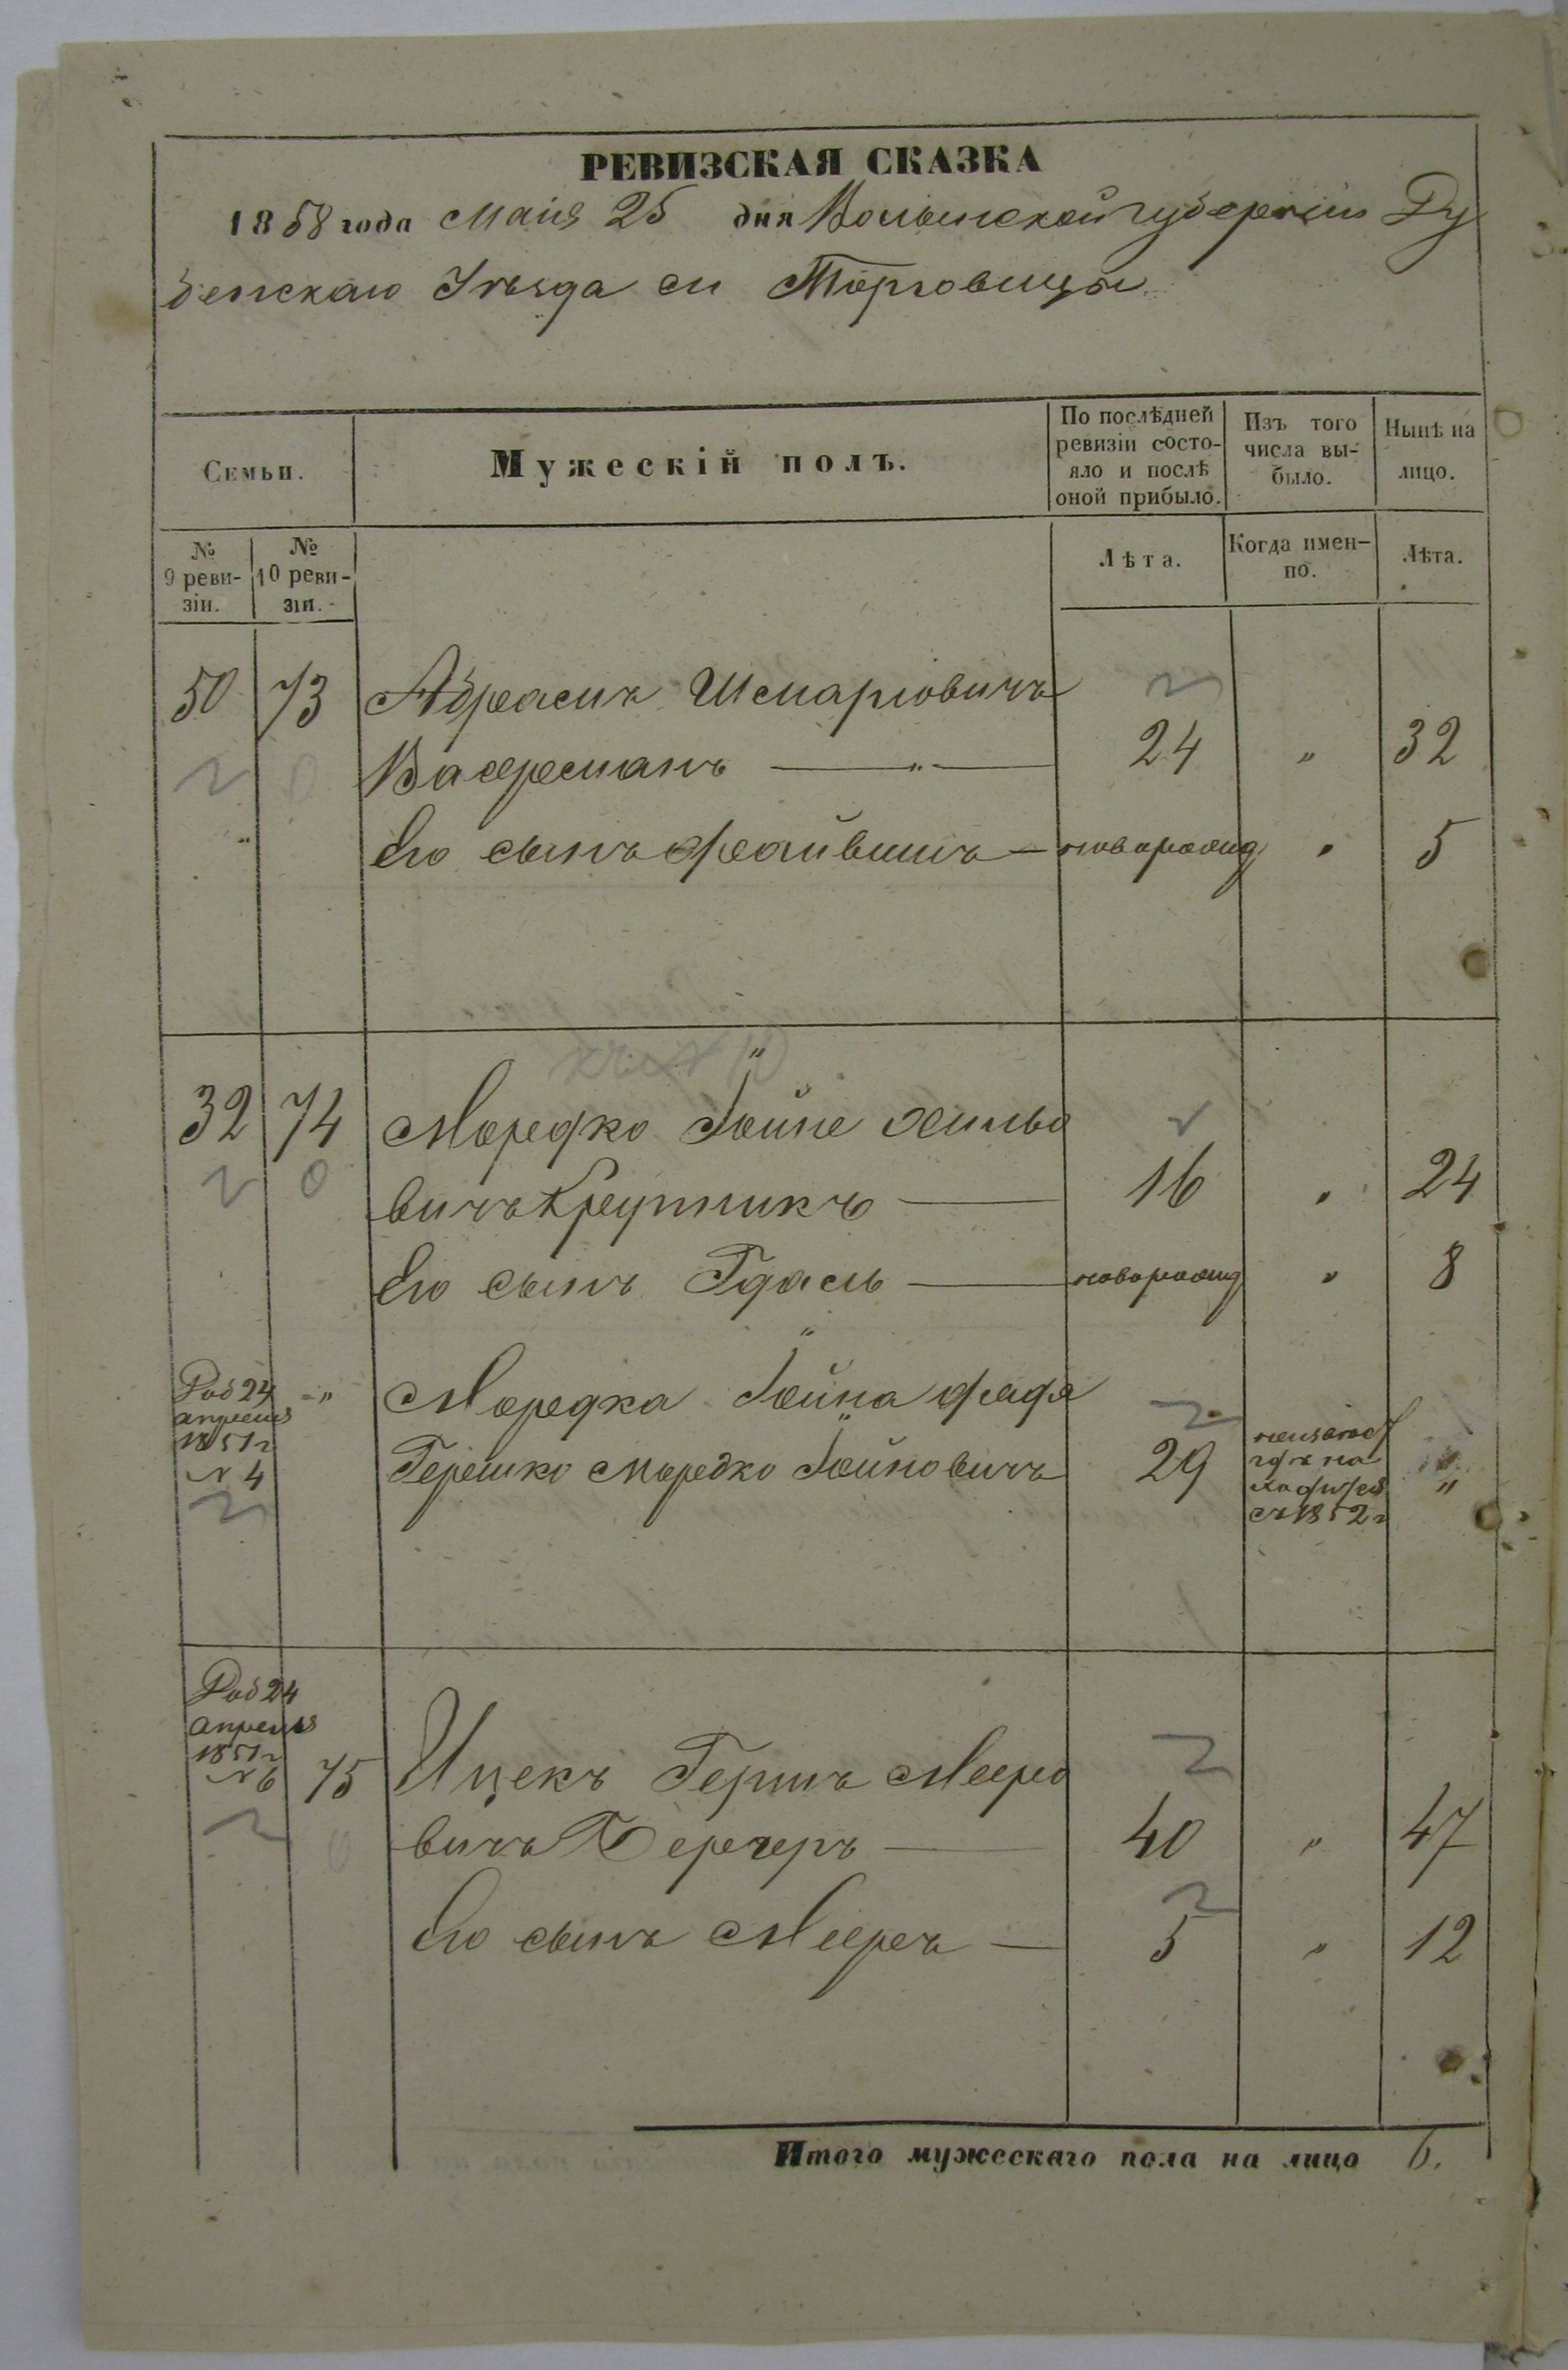 РЕВИЗСКАЯ СКАЗКА
1858 года Маія 25 дня Волынской губерніи Ду
бенскаго Уѣзда м Торговицы
Семьи.
Мужескій полъ.
По послѣдней ревизіи состо-
яло и послѣ оной прибыло.
Изъ того числа вы-
было.
Нынѣ на лицо.
№ 9 реви-
зіи.
№ 10 реви-
зіи.
Лѣта.
Когда имен-
но.
Лѣта.
50 73 Абрамъ Шмарiовичъ
Васерманъ — " — 24 " 32
" Его сынъ Файвишъ — новорожд " 5
32 74 Мордко Іойне Хильо
вичъ Крупникъ — 16 " 24
Его сынъ Гдаль — новорожд " 8
Доб 24 апреля 1851 г № 4 " Мордка Іойна дядя
Гершко Мордко Іойновичъ 29 неизвѣст гдѣ на ходится съ 1852 г "
Доб 24 апреля 1851 г № 6 75 Ицекъ Гершъ Мееро
вичъ Бергеръ — 40 " 47
Его сынъ Мееръ — 5 " 12
Итого мужескаго пола на лицо 6.